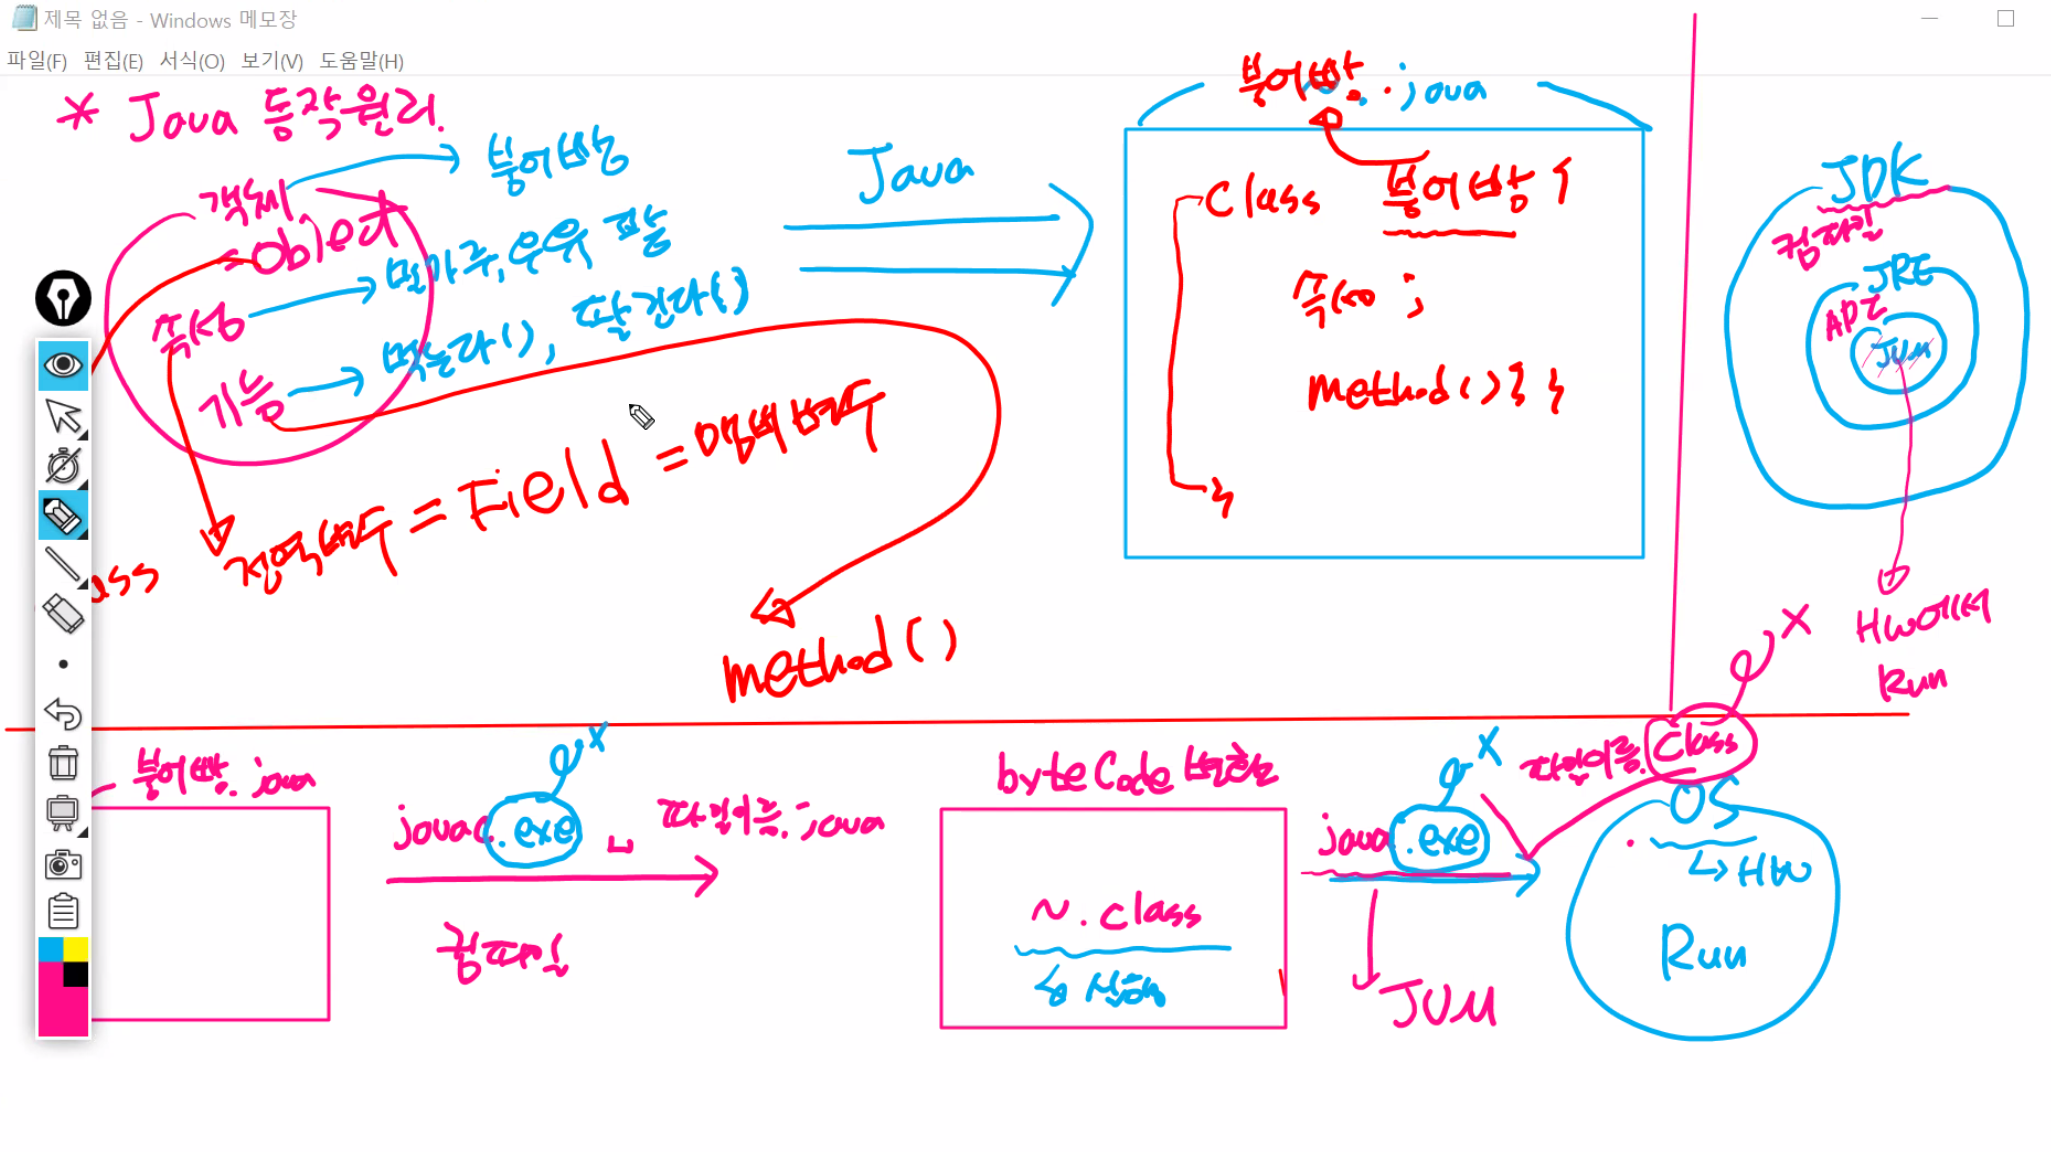 제목 없음 - Windows 메모장
파일(F) 편집(E) 서식(O) 보기(V) 도움말(H)
* Java 동작원리.
객체 → 붕어빵
= Object
속성 → 밀가루, 우유 팥
기능 → 먹는다(), 팔린다()
class
전역변수 = Field = 멤버변수
method()
Java
붕어빵.java
Class 붕어빵 {
속성 ;
method() { }
}
JDK
컴파일
JRE
API
JVM
HW에서
Run
붕어빵.java
javac.exe ␣ 파일이름.java
x
컴파일
byteCode 변환
~.class
↳ 실행
java.exe 파일이름.class
x
x
JVM
OS
↳ HW
Run